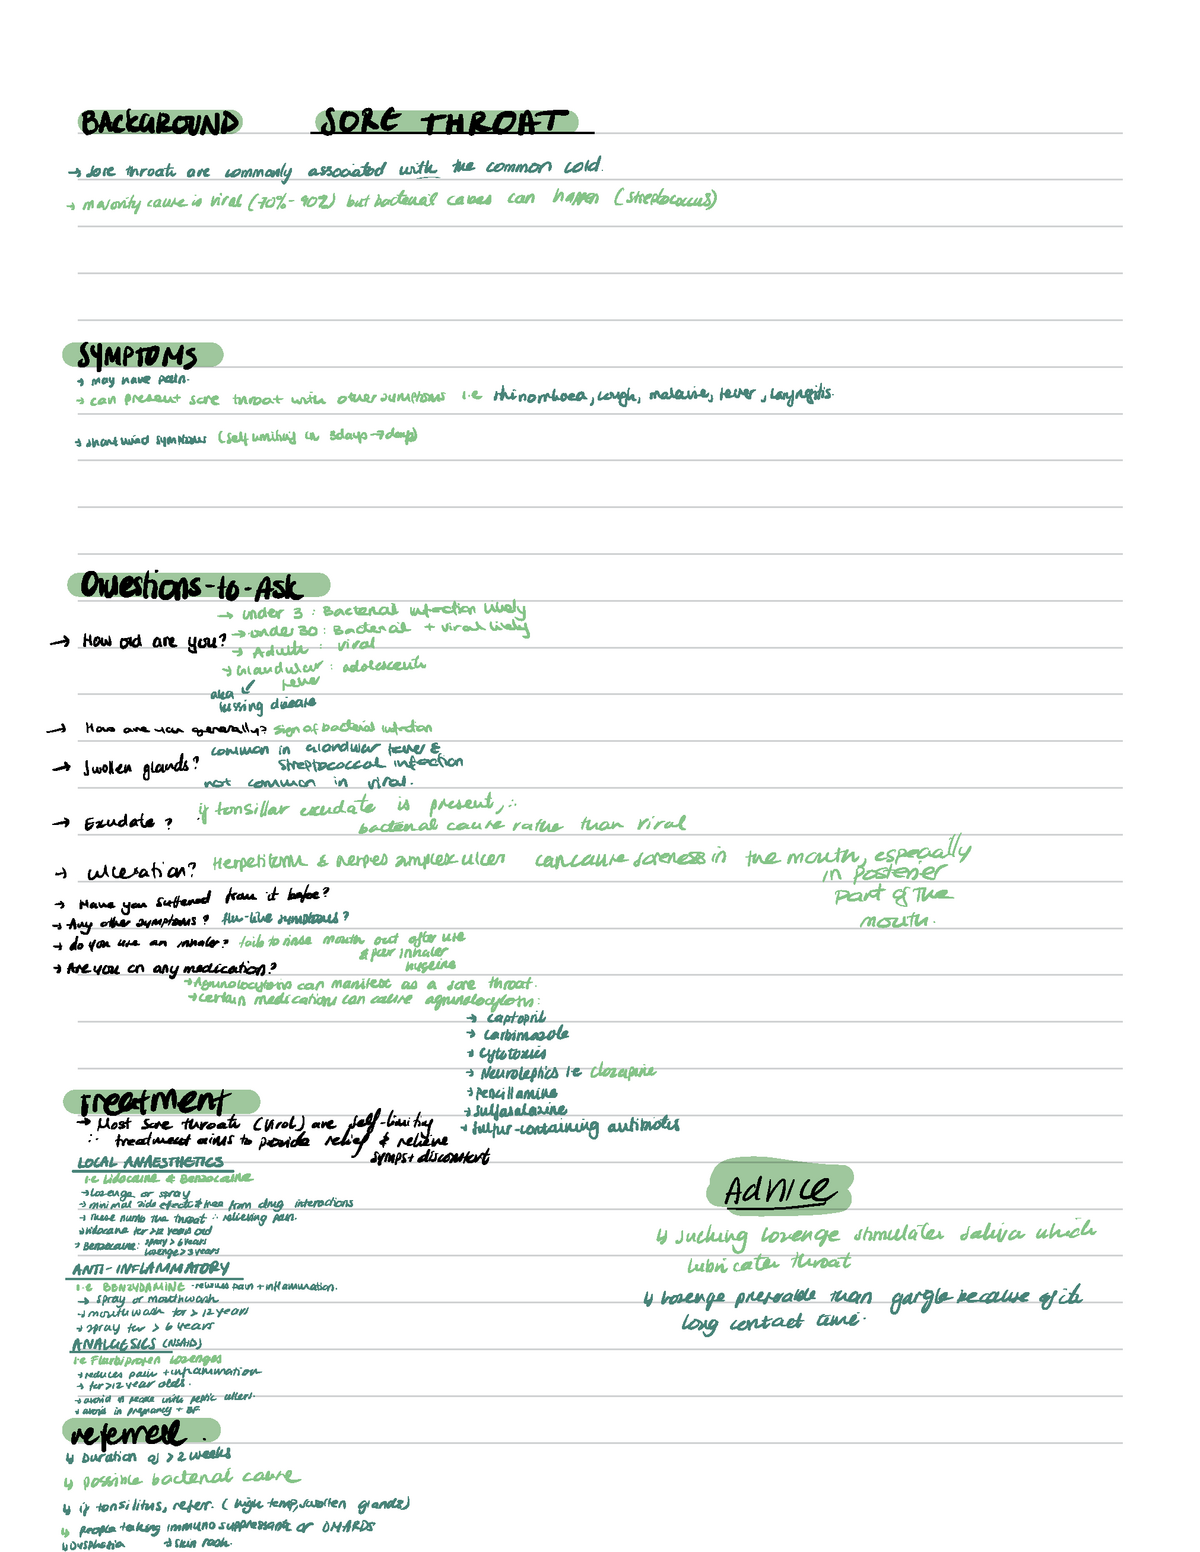 BACKGROUND SORE THROAT
→ Sore throats are commonly associated with the common cold.
→ majority cause is viral (70%-90%) but bacterial cases can happen (streptococcus)
SYMPTOMS
→ may have pain.
→ can present sore throat with other symptoms i.e rhinorrhoea, cough, malaise, fever, laryngitis.
→ short lived symptoms (self limiting in 3days→7days)
Questions-to-Ask
→ How old are you?
→ under 3 : Bacterial infection likely
→ under 30 : Bacterial + viral likely
→ Adults : viral
→ Glandular : adolescents
fever
aka ↙
kissing disease
→ How are you generally? sign of bacterial infection
→ Swollen glands? common in Glandular fever &
streptococcal infection
not common in viral.
→ Exudate? if tonsillar exudate is present, ∴
bacterial cause rather than viral
→ ulceration? Herpetiform & herpes simplex ulcer can cause soreness in the mouth, especially
in posterior
part of the
mouth.
→ Have you suffered from it before?
→ Any other symptoms? flu-like symptoms?
→ do you use an inhaler? fails to rinse mouth out after use
inhaler
hygiene
→ Are you on any medication?
→ Agranulocytosis can manifest as a sore throat.
→ certain medications can cause agranulocytosis:
→ captopril
→ carbimazole
→ cytotoxics
→ Neuroleptics i.e clozapine
→ penicillamine
→ sulfasalazine
→ sulfur-containing antibiotics
Treatment
→ Most sore throats (viral) are self-limiting
∴ treatment aims to provide relief & relieve
symps + discomfort
LOCAL ANAESTHETICS
i.e Lidocaine & Benzocaine
→ Lozenge or spray
→ minimal side effects & free from drug interactions
→ these numb the throat ∴ relieving pain.
→ lidocaine for >12 years old
→ Benzocaine: spray > 6 years
lozenge > 3 years
ANTI-INFLAMMATORY
i.e BENZYDAMINE - relieves pain + inflammation.
→ spray or mouthwash
→ mouthwash for > 12 years
→ spray for > 6 years
ANALGESICS (NSAID)
i.e Flurbiprofen Lozenges
→ reduces pain + inflammation
→ for >12 year olds.
→ avoid in people with peptic ulcers.
→ avoid in pregnancy + BF
Advice
↳ Sucking lozenge stimulates saliva which
lubricates throat
↳ Lozenge preferable than gargle because of its
long contact time.
referral.
↳ Duration of > 2 weeks
↳ possible bacterial cause
↳ if tonsilitus, referr. (high temp, swollen glands)
↳ people taking immuno suppressants or DMARDS
↳ Dysphasia → skin rash.